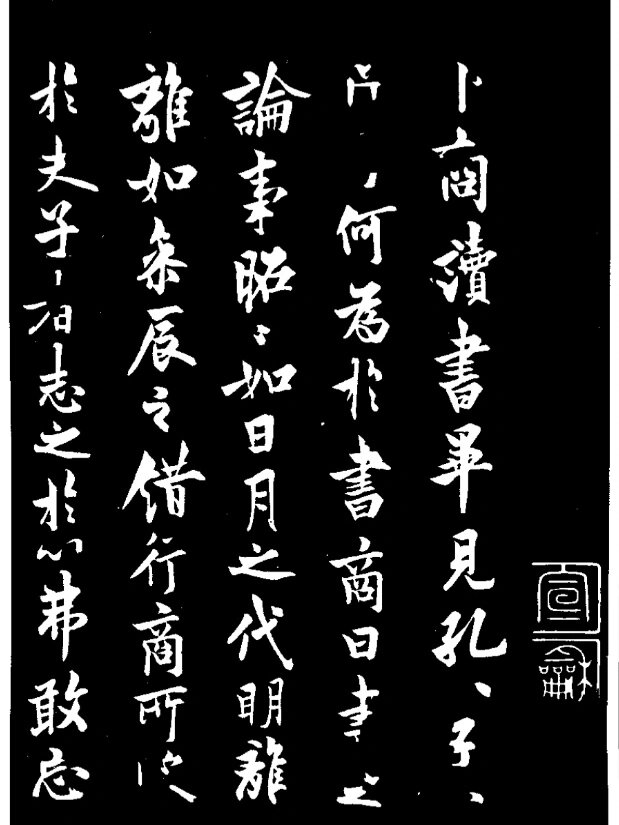 宣龢
卜商讀書畢見孔〻子〻
何為於書商曰書之
論事昭〻如日月之代明離
離如參辰之錯行商所
於夫子志之於心弗敢忘